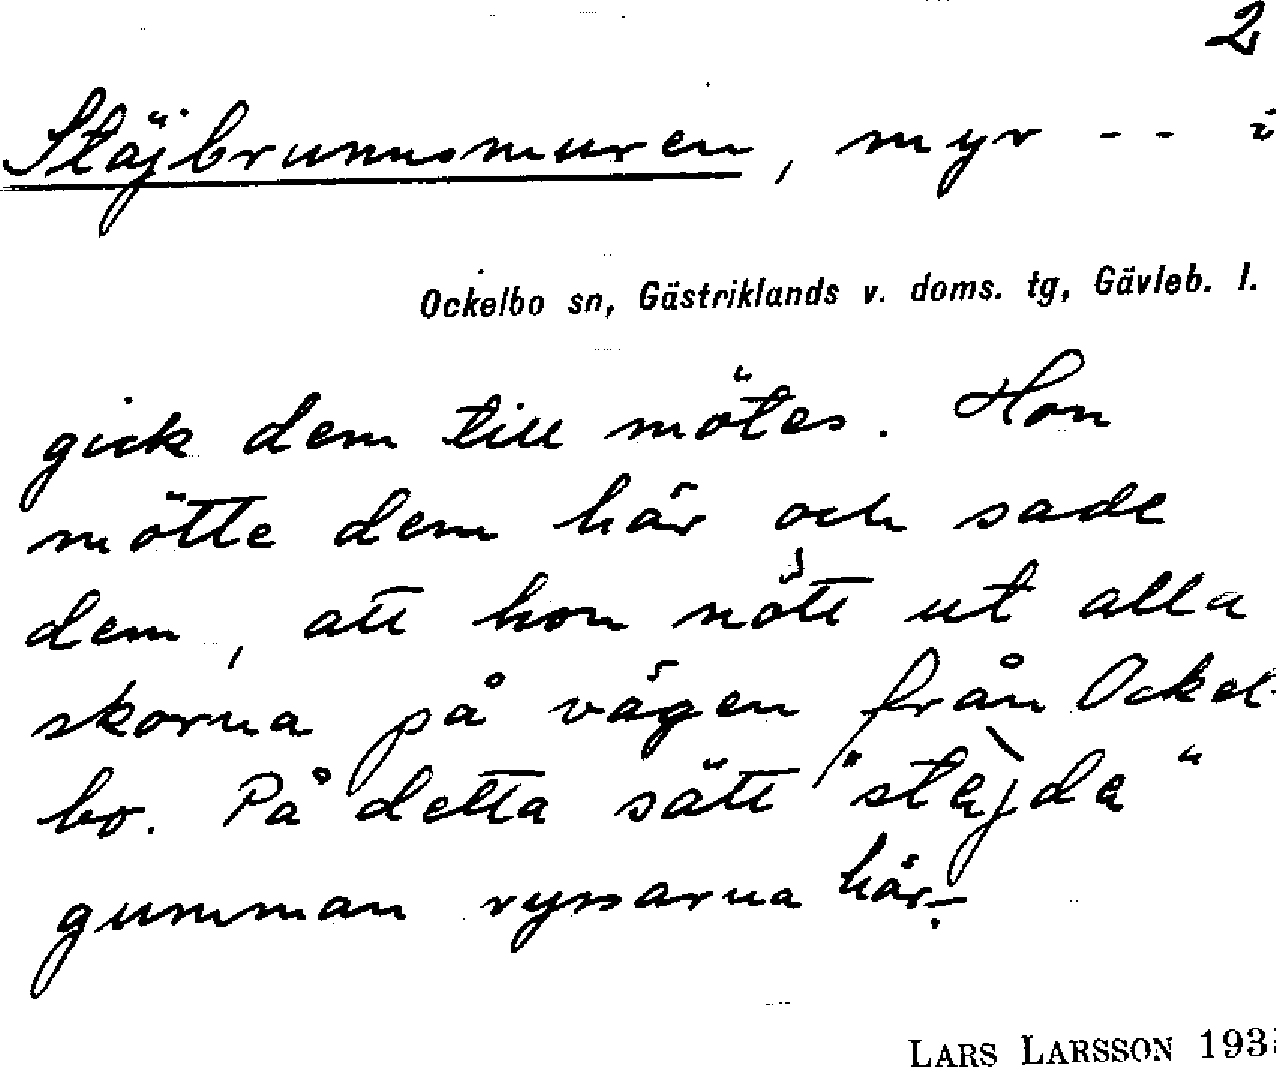 2
Stäjbrunnsmuren, myr -- i
Ockelbo sn, Gästriklands v. doms. tg, Gävleb. l.
gick dem till mötes. Hon
mötte dem här och sade
dem, att hon nött ut alla
skorna på vägen från Ockel-
bo. På detta sätt "stäjda"
gumman ryssarna här.
LARS LARSSON 193